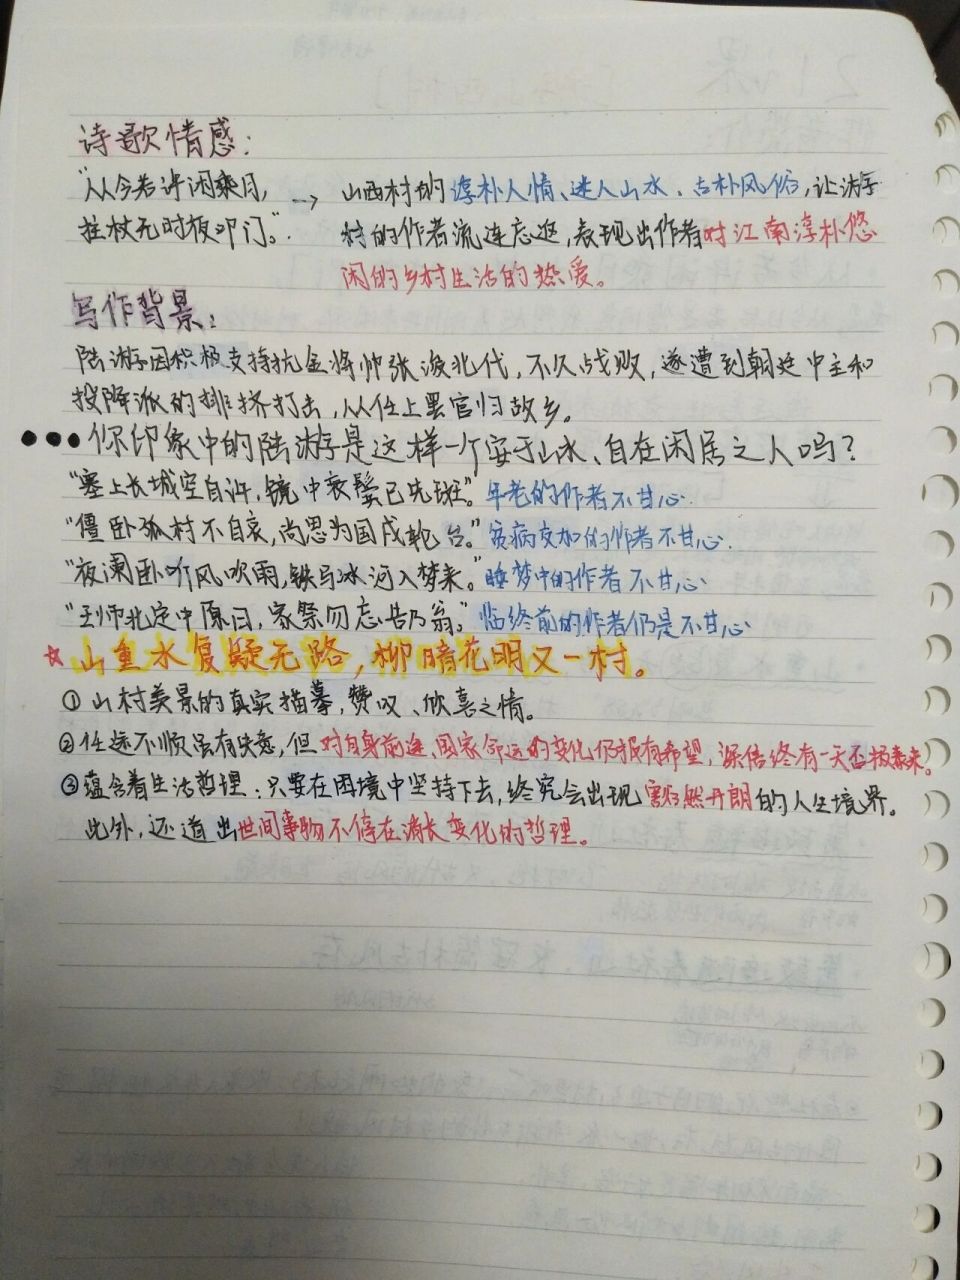 诗歌情感：
“从今若许闲乘月， → 山西村的淳朴人情、迷人山水、古朴风俗，让游
拄杖无时夜叩门。” 村的作者流连忘返，表现出作者对江南淳朴悠
闲的乡村生活的热爱。
写作背景：
陆游因积极支持抗金将帅张浚北伐，不久战败，遂遭到朝廷中主和
投降派的排挤打击，从任上罢官归故乡。
●●●你印象中的陆游是这样一个安于山水、自在闲居之人吗？
“塞上长城空自许，镜中衰鬓已先斑。”年老的作者不甘心
“僵卧孤村不自哀，尚思为国戍轮台。”贫病交加的作者不甘心.
“夜阑卧听风吹雨，铁马冰河入梦来。”睡梦中的作者不甘心
“王师北定中原日，家祭勿忘告乃翁。”临终前的作者仍是不甘心
☆山重水复疑无路，柳暗花明又一村。
①山村美景的真实描摹，赞叹、欣喜之情。
②仕途不顺虽有失意，但对自身前途、国家命运的变化仍抱有希望，深信终有一天否极泰来。
③蕴含着生活哲理：只要在困境中坚持下去，终究会出现豁然开朗的人生境界。
此外，还道出世间事物不停在消长变化的哲理。